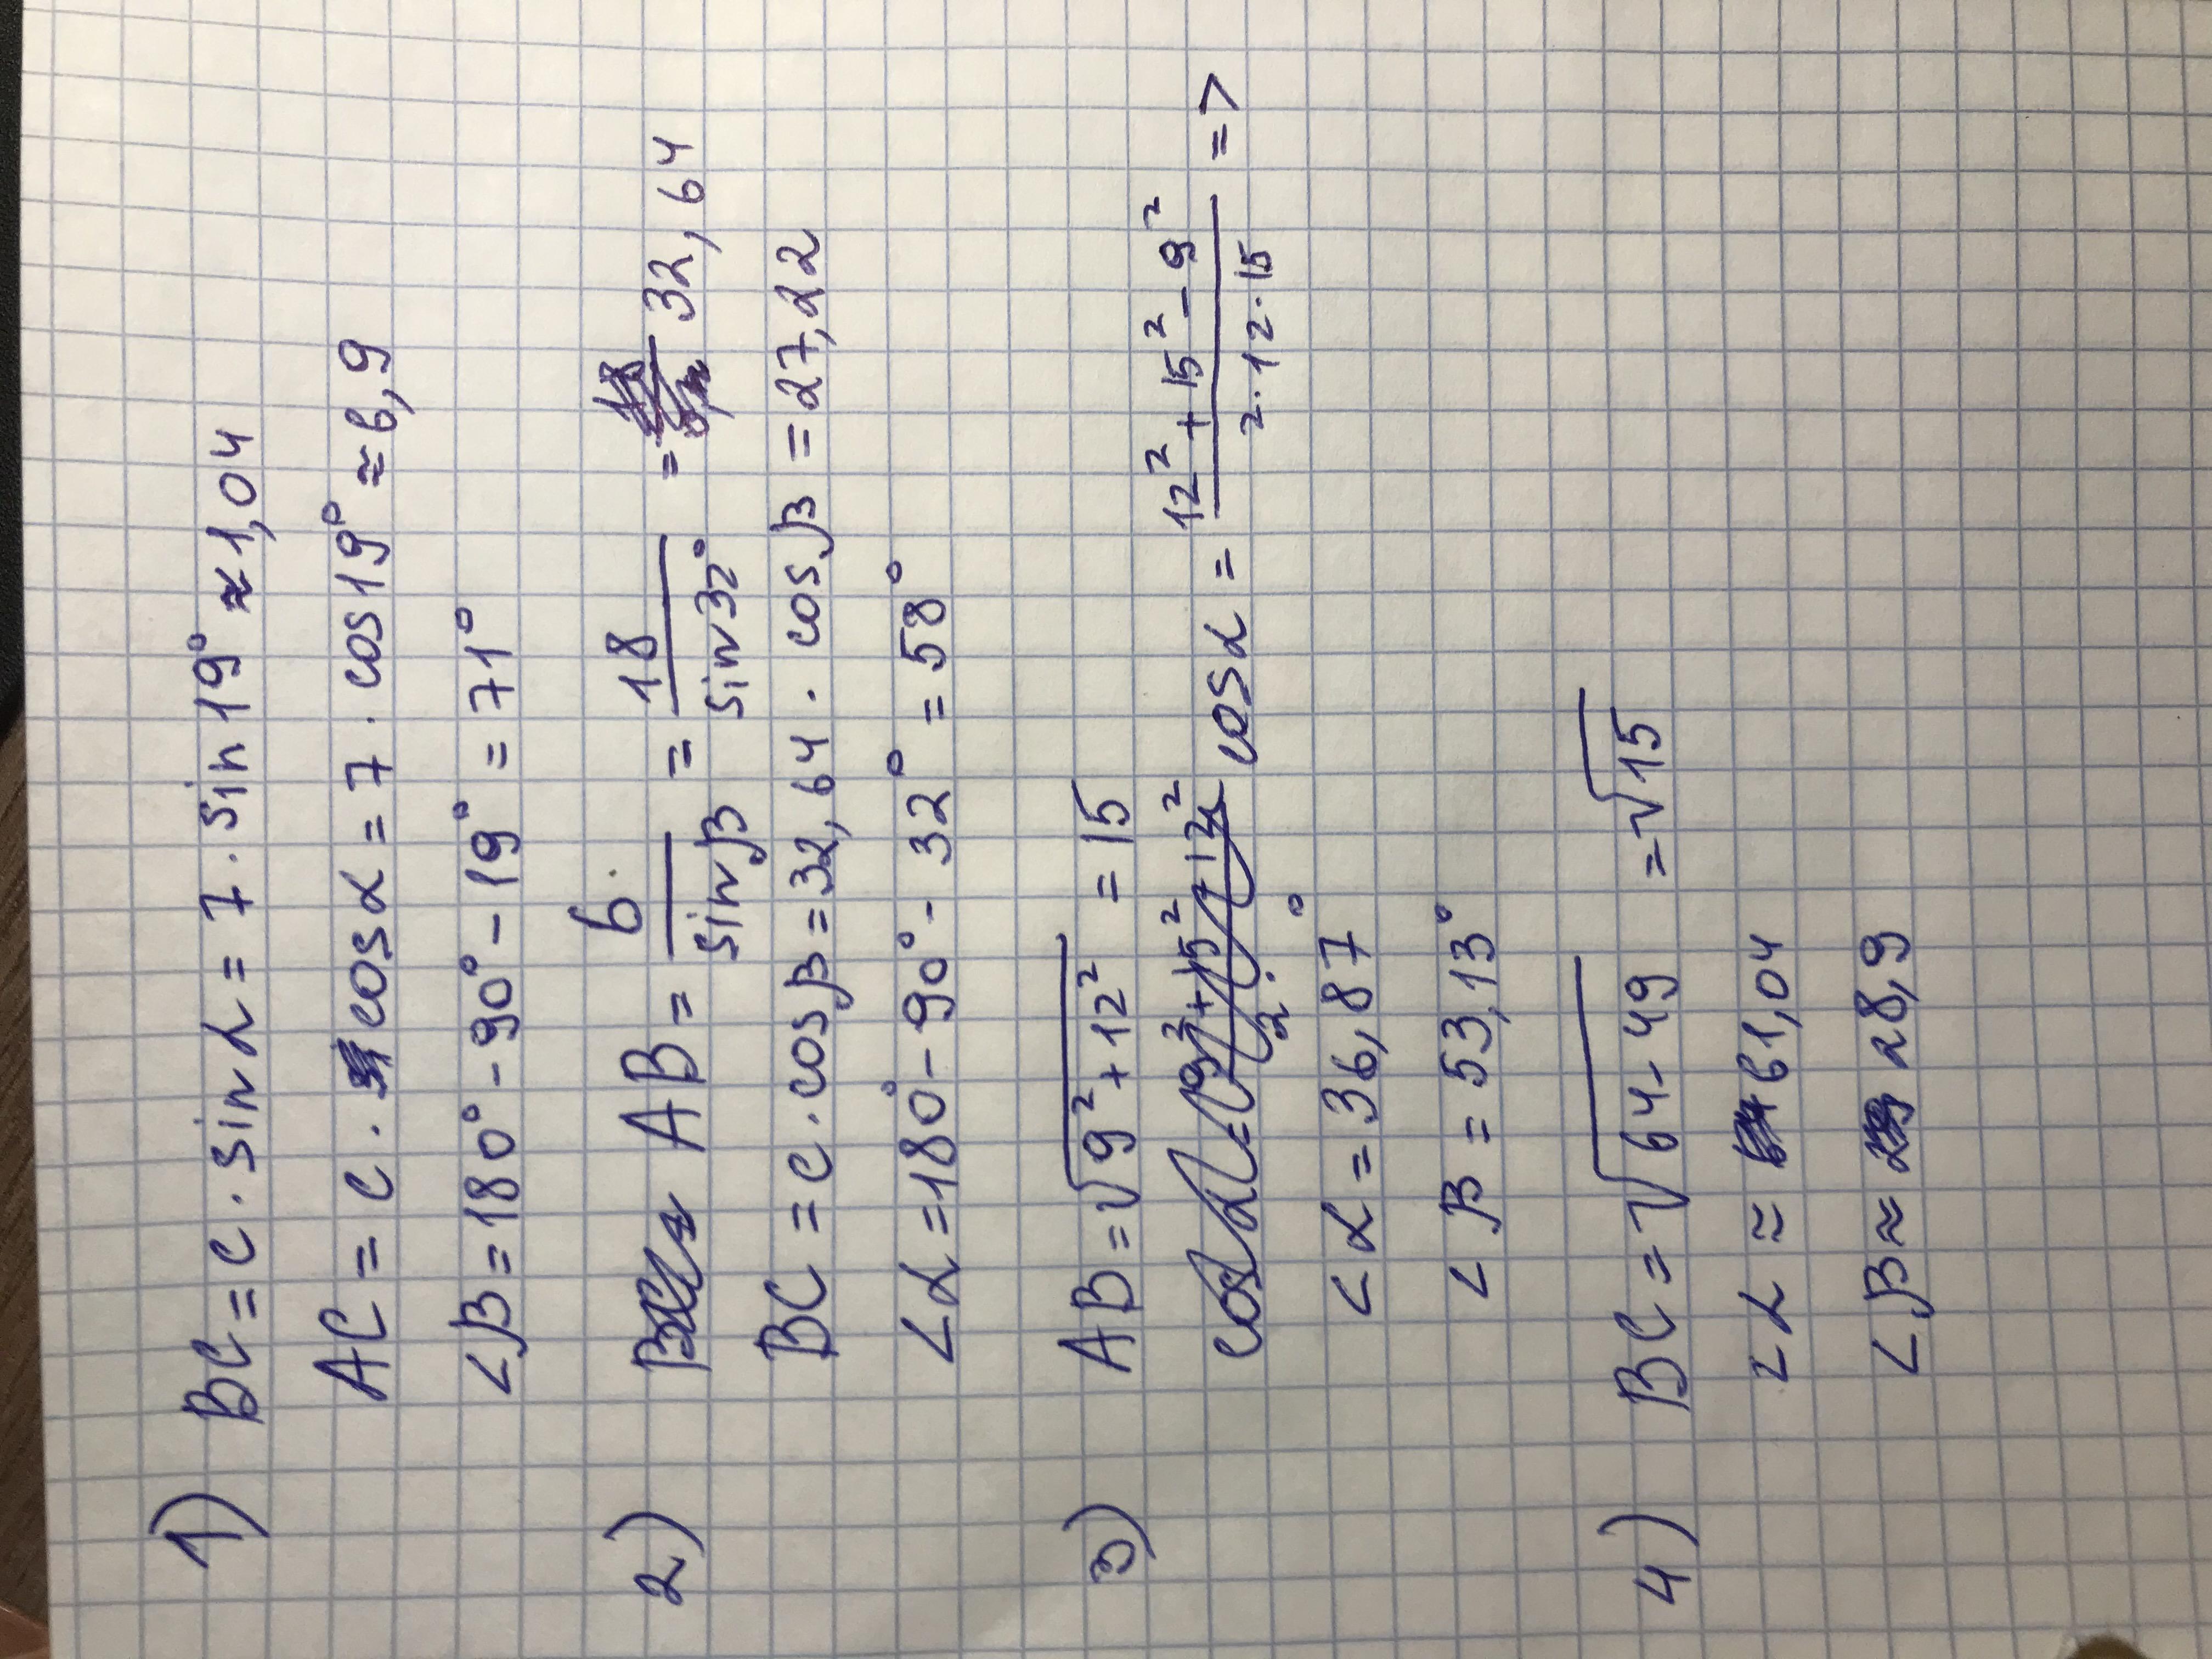 1) BC = c · sin α = 7 · sin 19° ≈ 1,04
AC = c · cos α = 7 · cos 19° ≈ 6,9
∠β = 180° - 90° - 19° = 71°
2) AB = b / sin β = 18 / sin 32° = 32,64
BC = c · cos β = 32,64 · cos β = 27,22
∠α = 180° - 90° - 32° = 58°
3) AB = √(9² + 12²) = 15
cos α = (12² + 15² - 9²) / (2 · 12 · 15) =>
∠α = 36,87°
∠β = 53,13°
4) BC = √(64 - 49) = √15
∠α ≈ 61,04
∠β ≈ 28,9